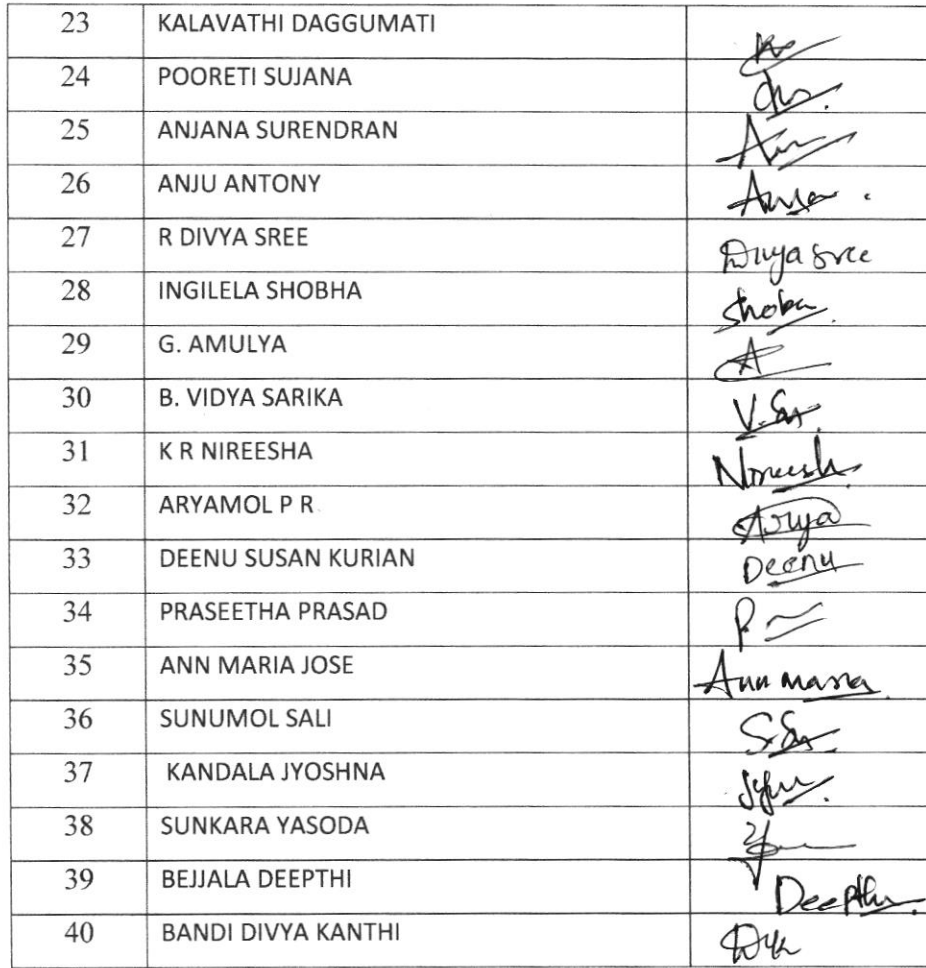 23 KALAVATHI DAGGUMATI
24 POORETI SUJANA
25 ANJANA SURENDRAN
26 ANJU ANTONY
27 R DIVYA SREE Divya sree
28 INGILELA SHOBHA Shoba
29 G. AMULYA A
30 B. VIDYA SARIKA
31 K R NIREESHA
32 ARYAMOL P R Arya
33 DEENU SUSAN KURIAN Deenu
34 PRASEETHA PRASAD
35 ANN MARIA JOSE Ann maria
36 SUNUMOL SALI
37 KANDALA JYOSHNA
38 SUNKARA YASODA
39 BEJJALA DEEPTHI Deepthi
40 BANDI DIVYA KANTHI